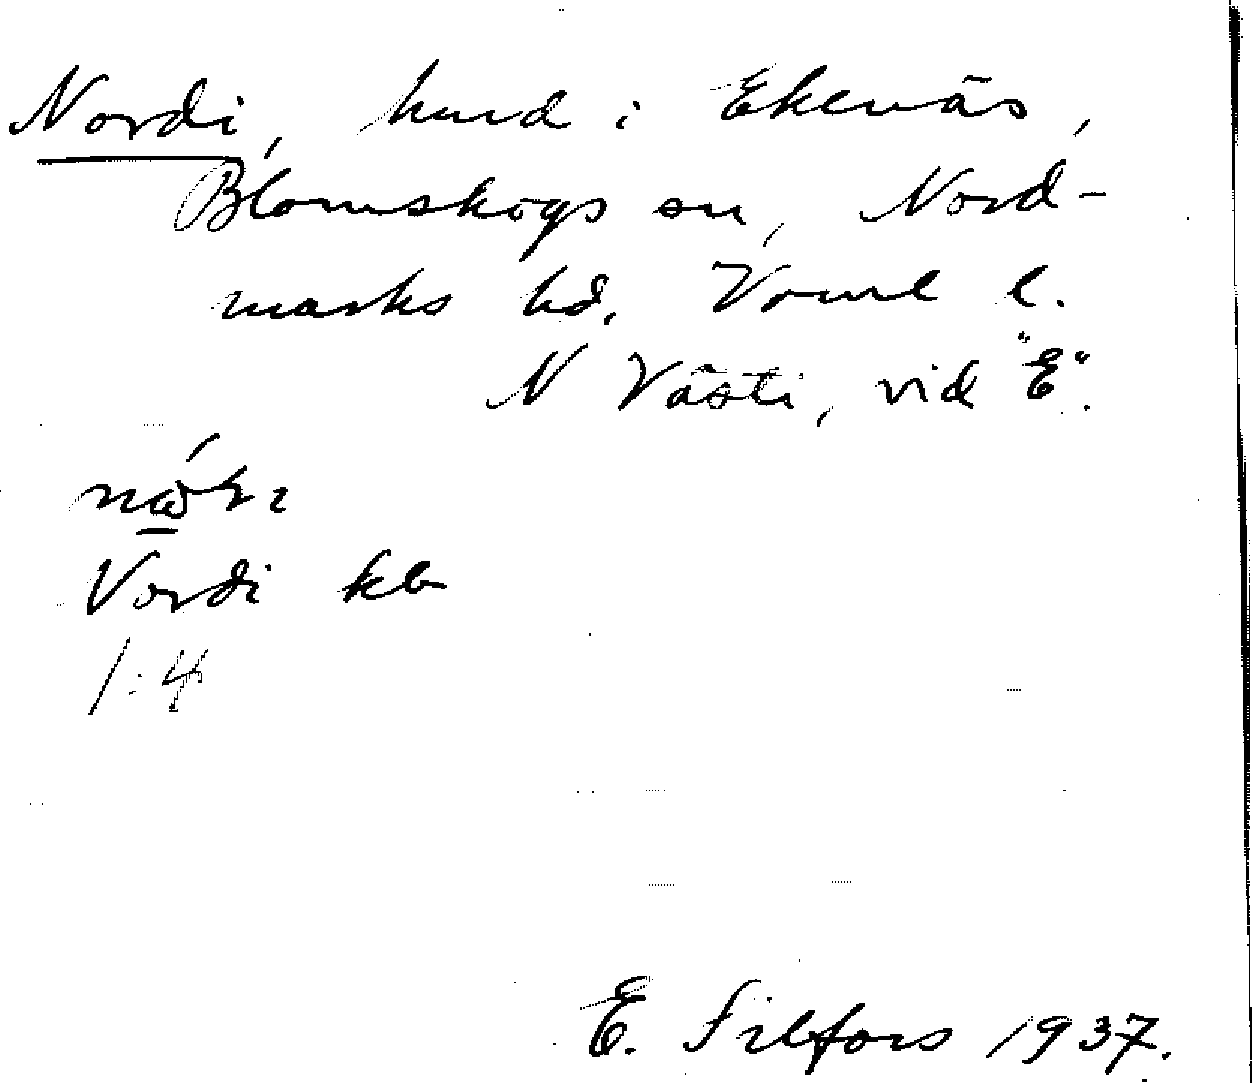 Nordi, hmd i Ekenäs,
Blomskogs sn, Nord-
marks hd, Vrml l.
N Västi, vid "E".
Nordi kb
1:4
E. Filfors 1937.